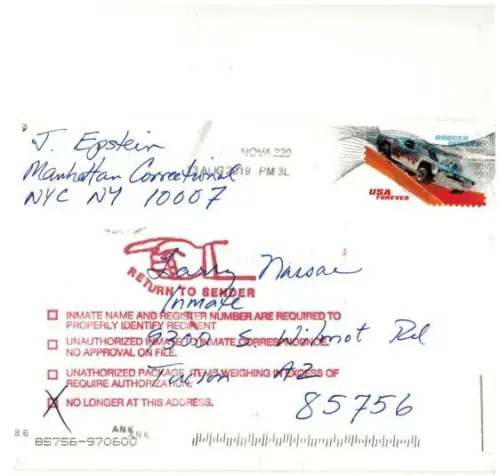 J. Epstein
Manhattan Correctional
NYC NY 10007
NOVA 220
AUG 2019 PM 3L
RODGER DODGER
USA
FOREVER
RETURN TO SENDER
Larry Nassar
Inmate
9300 S. Wilmot Rd
Tucson AZ
85756
INMATE NAME AND REGISTER NUMBER ARE REQUIRED TO
PROPERLY IDENTIFY RECIPIENT
UNAUTHORIZED INMATE TO INMATE CORRESPONDENCE.
NO APPROVAL ON FILE.
UNATHORIZED PACKAGE, ITEMS WEIGHING IN EXCESS OF
REQUIRE AUTHORIZATION.
X NO LONGER AT THIS ADDRESS.
86
ANK
ANK
85756-970600